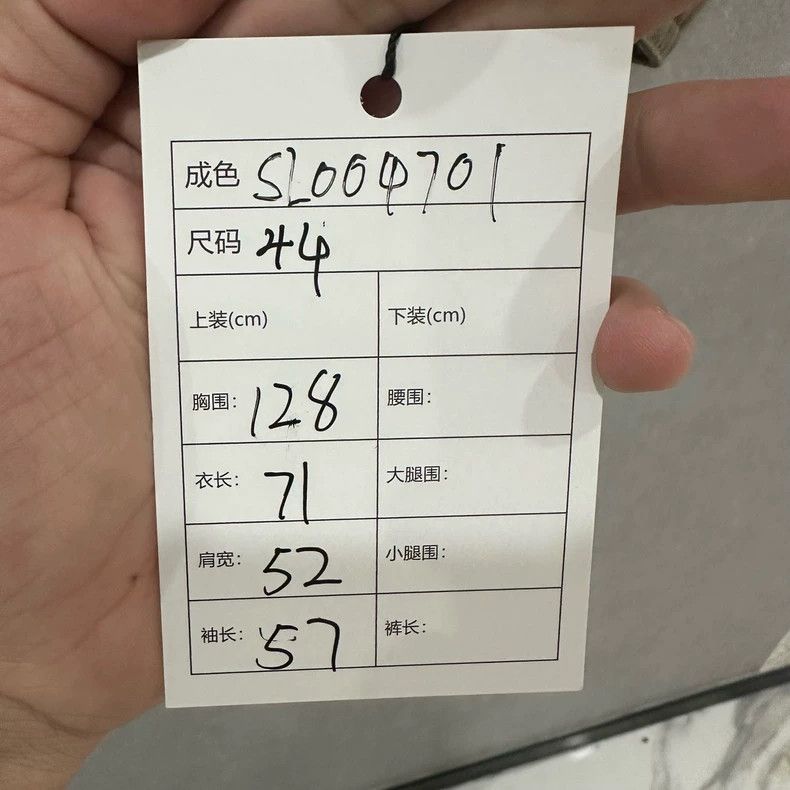 成色 SL004701
尺码 44
上装(cm) 下装(cm)
胸围: 128 腰围:
衣长: 71 大腿围:
肩宽: 52 小腿围:
袖长: 57 裤长: